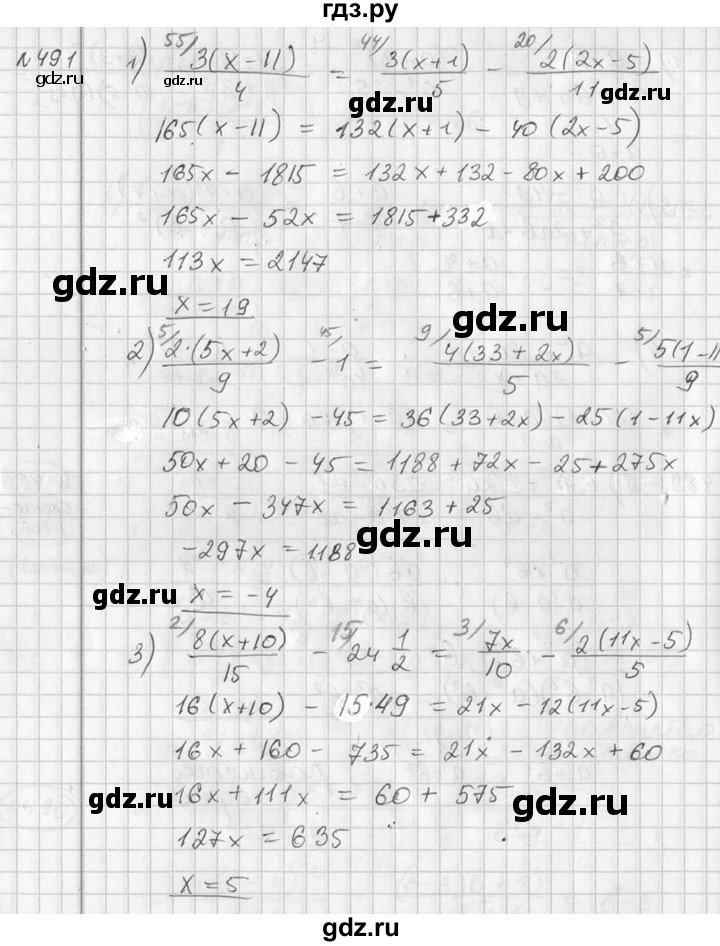 гдз.ру
№491 1) 55/ 3(x-11)/4 = 44/ 3(x+1)/5 - 20/ 2(2x-5)/11
gdz.ru gdz.ru gdz.ru
165(x-11) = 132(x+1) - 40(2x-5)
165x - 1815 = 132x + 132 - 80x + 200
165x - 52x = 1815 + 332
113x = 2147
gdz.ru gdz.ru
x = 19
2) 5/ 2·(5x+2)/9 - 45/ 1 = 9/ 4(33+2x)/5 - 5/ 5(1-11/9
10(5x+2) - 45 = 36(33+2x) - 25(1-11x)
50x + 20 - 45 = 1188 + 72x - 25 + 275x
50x - 347x = 1163 + 25
gdz.ru
-297x = 1188
gdz.ru
x = -4
3) 2/ 8(x+10)/15 - 15/ 24 1/2 = 3/ 7x/10 - 6/ 2(11x-5)/5
16(x+10) - 15·49 = 21x - 12(11x-5)
16x + 160 - 735 = 21x - 132x + 60
gdz.ru gdz.ru
16x + 111x = 60 + 575
127x = 635
x = 5
gdz.ru